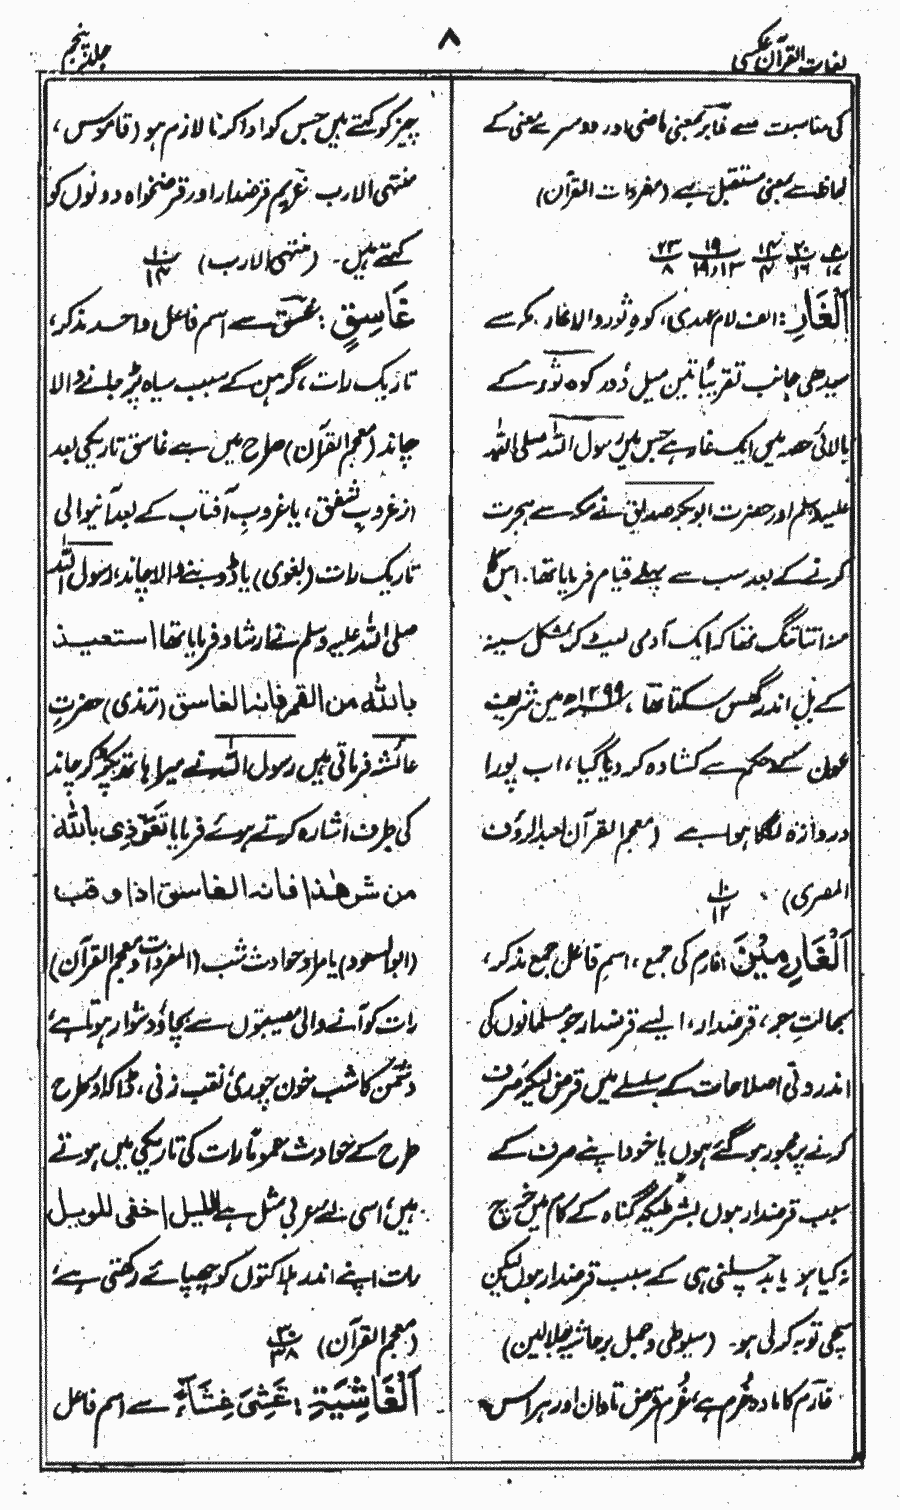 لغات القرآن عکسی
۸
جلد پنجم
کی مناسبت سے غابر بمعنی ماضی اور دوسرے معنی کے
لحاظ سے بمعنی مستقبل ہے (مفردات القرآن)
۸/۱۷ ۲۰/۱۶ ۱۴/۴ ۱۹/۱۳،۱۹ ۲۳/۸
اَلْغَارِ: الف لام عہدی، کوہِ ثور والا غار، مکہ سے
سیدھی جانب تقریباً تین میل دُور کوہ ثور کے
بالائی حصہ میں ایک غار ہے جس میں رسول اللہ صلی اللہ
علیہ وسلم اور حضرت ابوبکر صدیق نے مکہ سے ہجرت
کرنے کے بعد سب سے پہلے قیام فرمایا تھا۔ اس کا
منہ اتنا تنگ تھا کہ ایک آدمی لیٹ کر بمشکل سینہ
کے بل اندر گھس سکتا تھا، ۱۲۹۹ھ میں شریف
عون کے حکم سے کشادہ کر دیا گیا، اب پورا
دروازہ لگا ہوا ہے (معجم القرآن لعبد الرؤف
المصری) ۱۰/۱۲
اَلْغَارِمِیْنَ: غارم کی جمع، اسمِ فاعل جمع مذکر،
بحالتِ جر، قرضدار، ایسے قرضدار جو مسلمانوں کی
اندرونی اصلاحات کے سلسلے میں قرض لیکر صرف
کرنے پر مجبور ہو گئے ہوں یا خود اپنے صرف کے
سبب قرضدار ہوں بشرطیکہ گناہ کے کام میں خرچ
نہ کیا ہو یا بد چلنی ہی کے سبب قرضدار ہوں لیکن
سچی توبہ کرلی ہو۔ (سیوطی و جمل بر حاشیہ جلالین)
غارم کا مادہ غُرم ہے، غُرم قرض تاوان اور ہر اس
چیز کو کہتے ہیں جس کو ادا کرنا لازم ہو (قاموس،
منتہی الارب غریم قرضدار اور قرضخواہ دونوں کو
کہتے ہیں۔ (منتہی الارب) ۱۰/۱۴
غَاسِقٍ: غسق سے اسم فاعل واحد مذکر،
تاریک رات، گرہن کے سبب سیاہ پڑ جانے والا
چاند (معجم القرآن) صراح میں ہے غاسق تاریکی بعد
از غروبِ شفق، یا غروبِ آفتاب کے بعد آنیوالی
تاریک رات (بغوی) یا ڈوبنے والا چاند، رسول اللہ
صلی اللہ علیہ وسلم نے ارشاد فرمایا تھا استعیذ
باللہ من القمر فانہ الغاسق (ترمذی) حضرتِ
عائشہ فرماتی ہیں رسول اللہ نے میرا ہاتھ پکڑ کر چاند
کی طرف اشارہ کرتے ہوئے فرمایا تعوّذی باللہ
من شر ھٰذا فانہ الغاسق اذا وقب
(ابو السعود) یا مراد حوادث شب (المفردات و معجم القرآن)
رات کو آنے والی مصیبتوں سے بچاؤ دشوار ہوتا ہے،
دشمن کا شب خون چوری، نقب زنی، ڈاکہ اور طرح
طرح کے حوادث عموماً رات کی تاریکی میں ہوتے
ہیں، اسی لئے عربی مثل ہے اللیل اخفی للویل
رات اپنے اندر ہلاکتوں کو چھپائے رکھتی ہے،
(معجم القرآن) ۳۰/۳۸
اَلْغَاشِیَۃِ: غَشِیَ غِشَاءٌ سے اسم فاعل